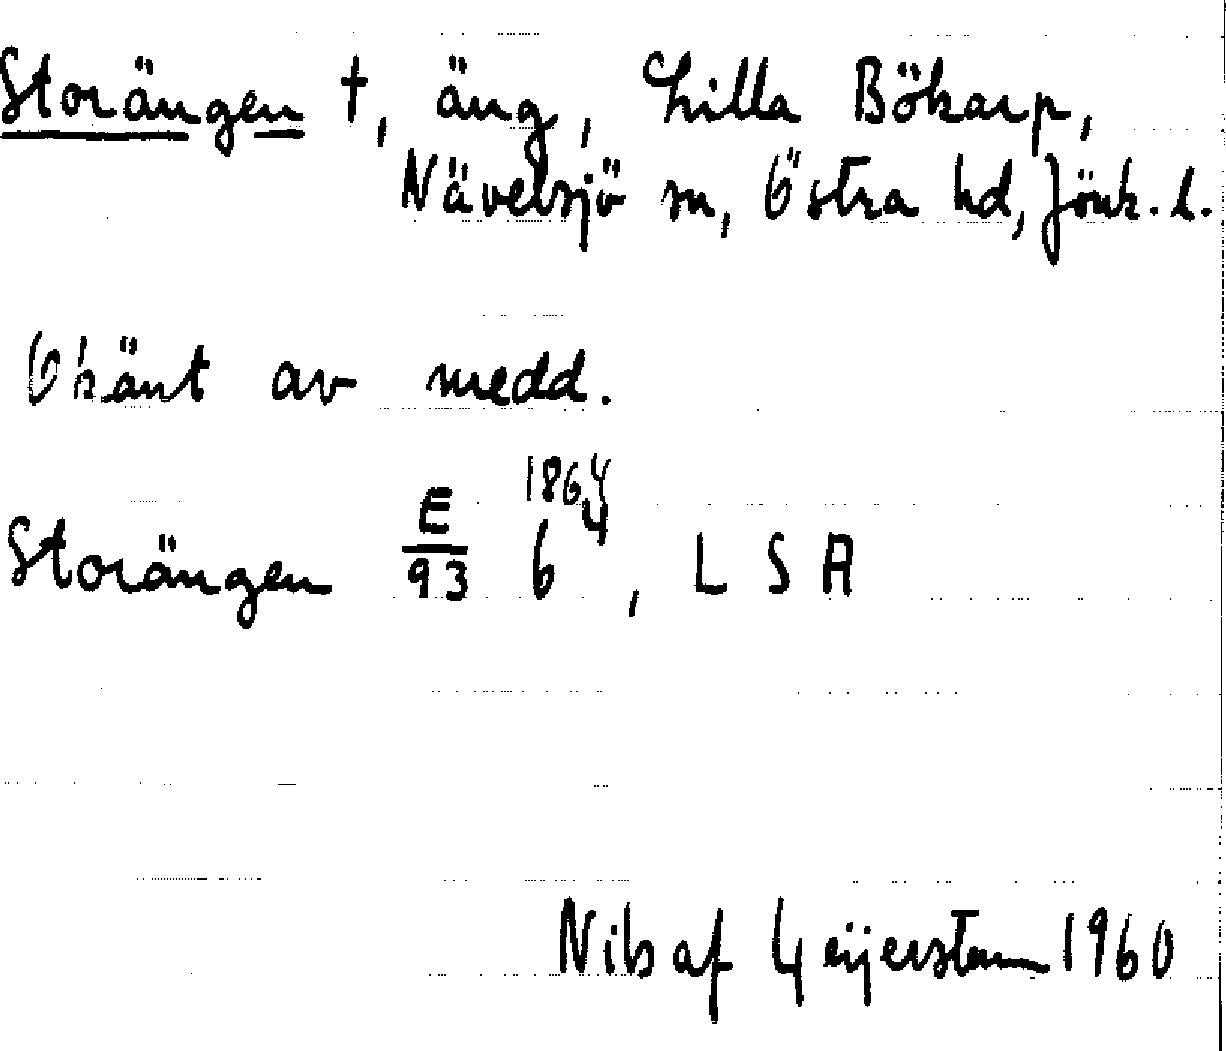 Storängen †, äng, Lilla Bökarp,
Nävelsjö sn, Östra hd, Jönk. l.
Okänt av medd.
Storängen E/93 6 1864, LSA
Nils af Geijerstam 1960